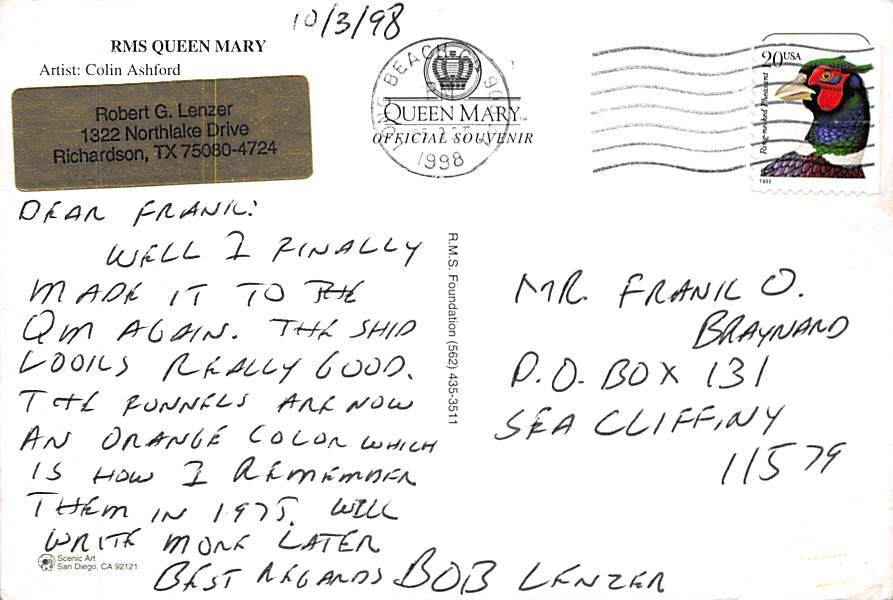 10/3/98
RMS QUEEN MARY
Artist: Colin Ashford
Robert G. Lenzer
1322 Northlake Drive
Richardson, TX 75080-4724
LONG BEACH CA 90
PM
QUEEN MARY
OFFICIAL SOUVENIR
1998
20USA
Ring-necked Pheasant
DEAR FRANK:
WELL I FINALLY
MADE IT TO THE
QM AGAIN. THE SHIP
LOOKS REALLY GOOD.
THE FUNNELS ARE NOW
AN ORANGE COLOR WHICH
IS HOW I REMEMBER
THEM IN 1975. WILL
WRITE MORE LATER
BEST REGARDS BOB LENZER
Scenic Art
San Diego, CA 92121
R.M.S. Foundation (562) 435-3511
MR. FRANK O.
BRAYNARD
P.O. BOX 131
SEA CLIFF, NY
11579